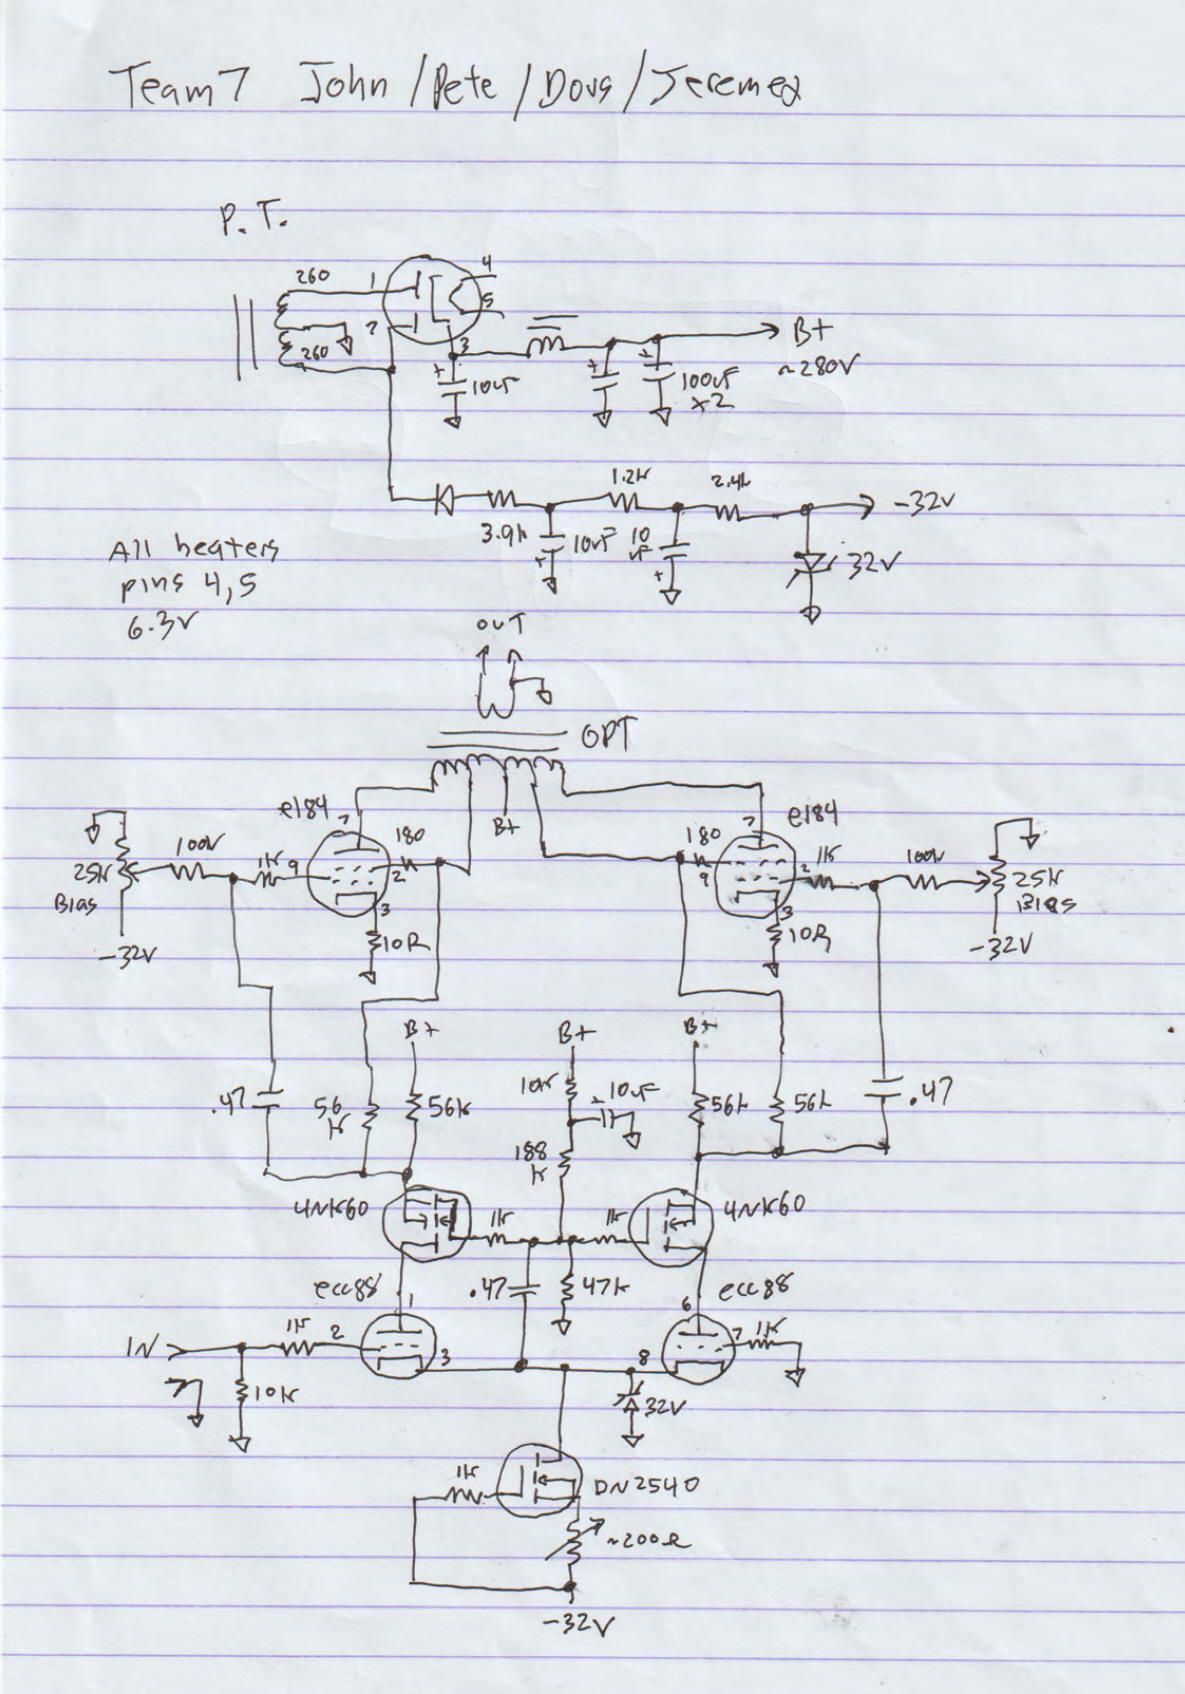 Team 7 John / Pete / Doug / Jeremey
P. T.
260 1 4
5
2
260 3
B+
10uF 100uF ~280V
x2
1.2k 2.4k
-32V
3.9k 10uF 10
uF 32V
All heaters
pins 4,5
6.3V
OUT
OPT
el84 7 B+ 7 el84
100k 1k 9 180 180 1k 100k
25k 2 9 2 25k
Bias 3 3 Bias
-32V 10R 10R -32V
B+ B+ B+
10k 10uF
.47 56 56k 56k 56k .47
k
188
k
4NK60 1k 1k 4NK60
ecc88 .47 47k ecc88
1 6
IN 1k 2 3 8 7 1k
10k 32V
1k DN2540
~200Ω
-32V